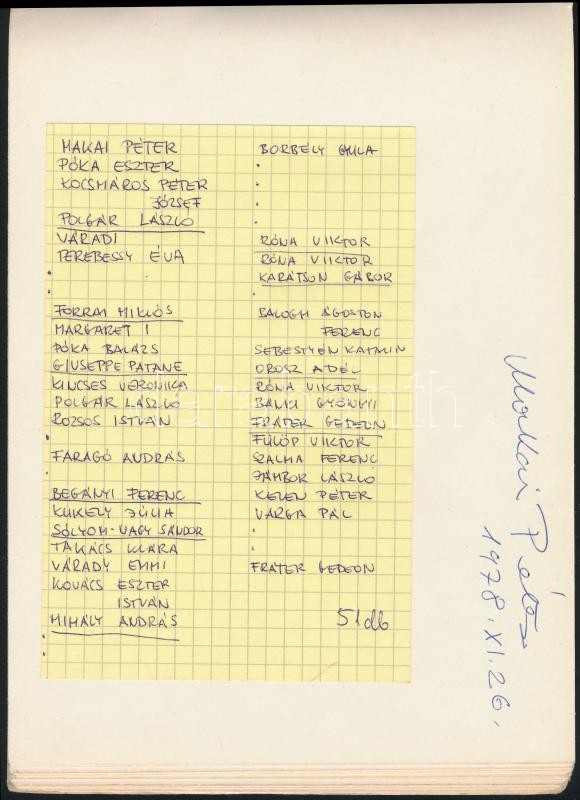 MAKAI PÉTER
PÓKA ESZTER
KOCSMÁROS PÉTER
JÓZSEF
POLGÁR LÁSZLÓ
VÁRADI
TEREBESSY ÉVA
FORRAI MIKLÓS
MARGARET I
PÓKA BALÁZS
GIUSEPPE PATANE
KINCSES VERONIKA
POLGÁR LÁSZLÓ
ROZSOS ISTVÁN
FARAGÓ ANDRÁS
BEGÁNYI FERENC
KUKELY JÚLIA
SÓLYOM-NAGY SÁNDOR
TAKÁCS KLÁRA
VÁRADY EMMI
KOVÁCS ESZTER
ISTVÁN
MIHÁLY ANDRÁS
BORBÉLY GYULA
RÓNA VIKTOR
RÓNA VIKTOR
KARÁTSON GÁBOR
BALOGH ÁGOSTON
FERENC
SEBESTYÉN KATALIN
OROSZ ADÉL
RÓNA VIKTOR
BÁNKI GYÖNGYI
FRÁTER GEDEON
FÜLÖP VIKTOR
SZALMA FERENC
JÁMBOR LÁSZLÓ
KELEN PÉTER
VARGA PÁL
FRÁTER GEDEON
51 db
Makai Péter
1978. XI. 26.